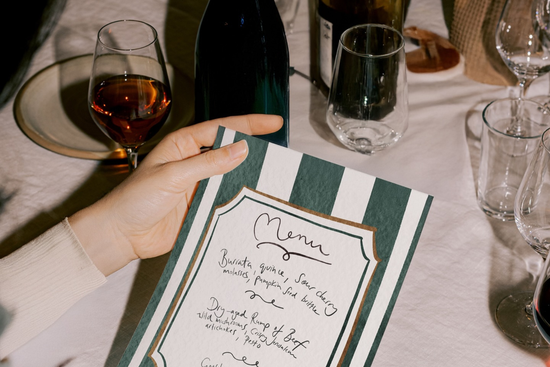 Menu
Burrata quince, Sour cherry
molasses, pumpkin seed brittle
Dry-aged Rump of Beef
wild mushrooms, Crispy Jerusalem
artichokes, pesto